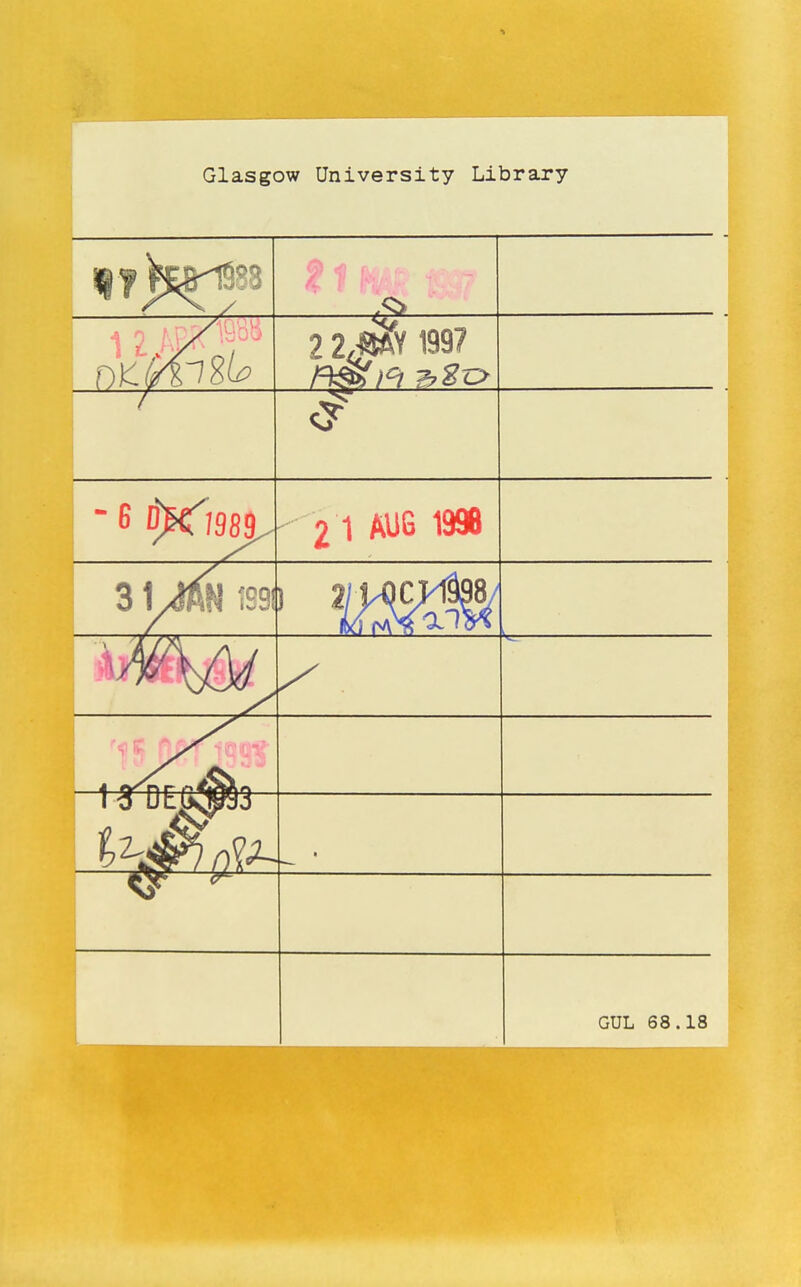 Glasgow University Library
17 FEB 1988
21 MAR 1997
12 APR 1988
22 MAY 1997
CANCELLED
- 6 DEC 1989
21 AUG 1998
31 JAN 1990
21 OCT 1998
15 OCT
13 DEC 1993
CANCELLED
GUL 68.18